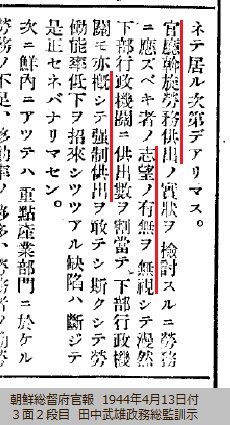 ネテ居ル次第デアリマス。
官廳斡旋勞務供出ノ實狀ヲ檢討スルニ勞務
ニ應ズベキ者ノ志望ノ有無ヲ無視シテ漫然
下部行政機關ニ供出數ヲ割當テ、下部行政機
關モ亦槪シテ强制供出ヲ敢テシ斯クシテ勞
働能率低下ヲ招來シツツアル缺陷ハ斷ジテ
是正セネバナリマセン。
次ニ鮮內ニアツテハ重點產業部門ニ於ケル
朝鮮総督府官報 1944年4月13日付
3面2段目 田中武雄政務総監訓示